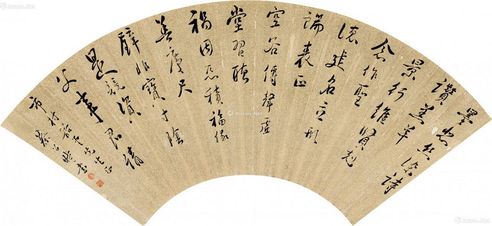 墨悲絲染詩
讚羔羊
景行維賢克
念作聖
德建名立形
端表正
空谷傳聲虛
堂習聽
禍因惡積福緣
善慶尺
璧非寶寸陰
是競資
父事君
書